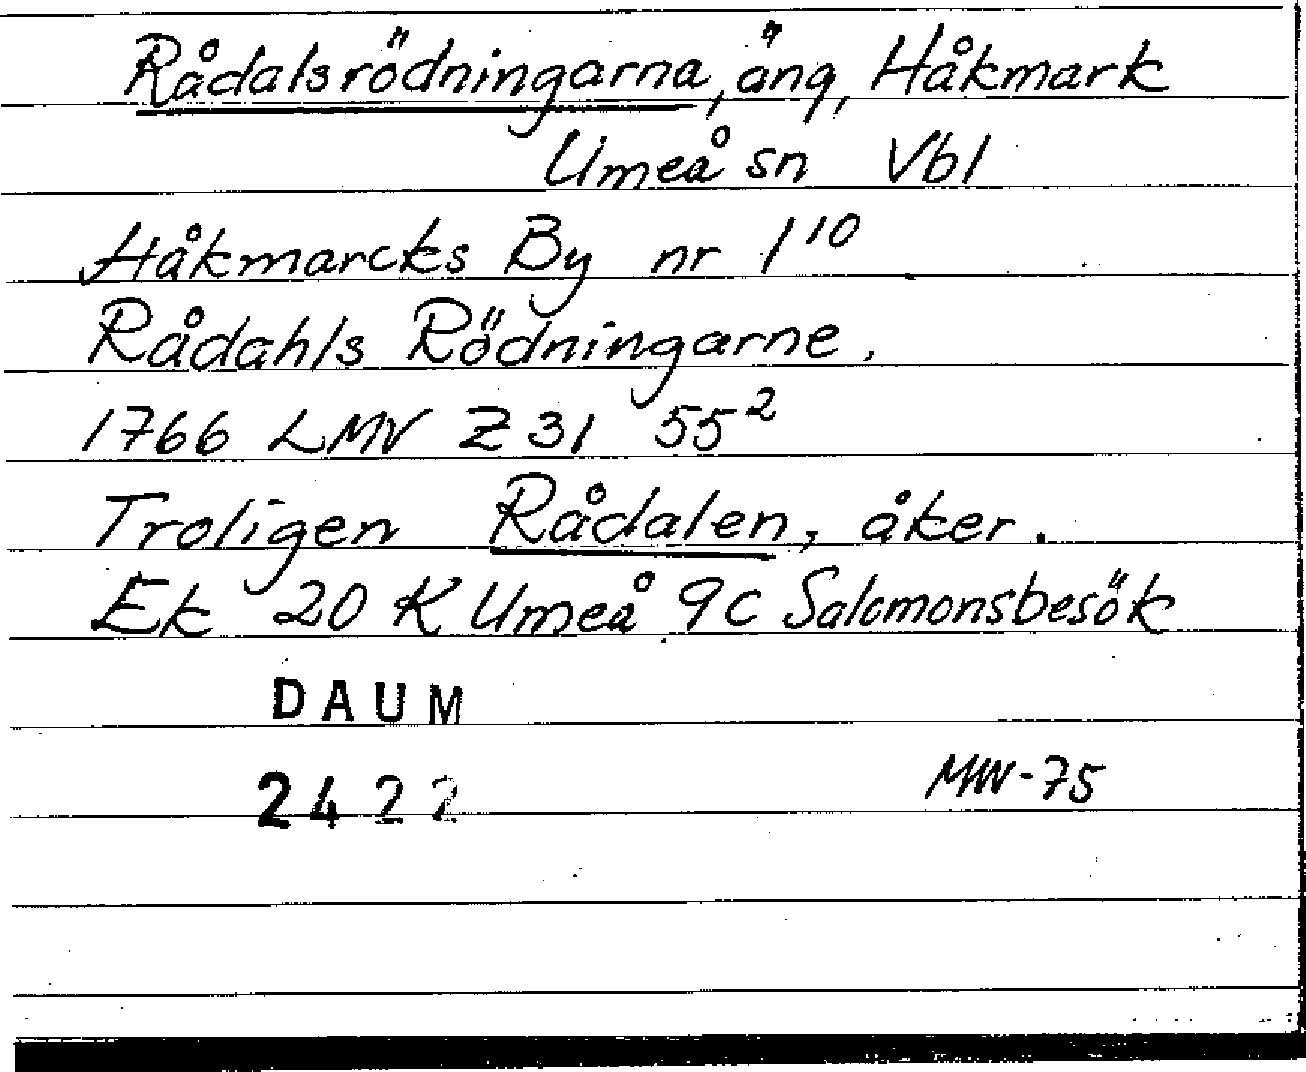 Rådalsrödningarna, äng, Håkmark
Umeå sn Vbl
Håkmarcks By nr 1¹⁰
Rådahls Rödningarne.
1766 LMV Z 31 55²
Troligen Rådalen, åker.
Ek 20 K Umeå 9c Salomonsbesök
DAUM
2422
MW-75